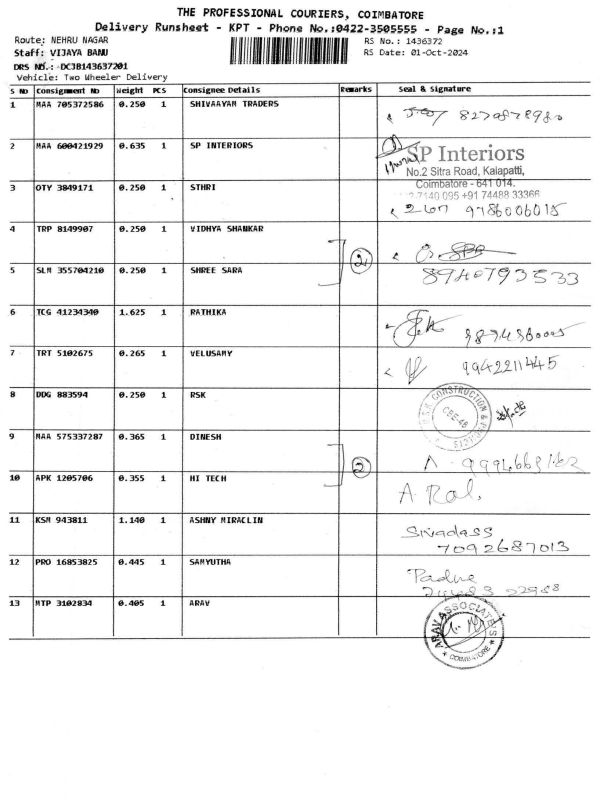 THE PROFESSIONAL COURIERS, COIMBATORE
Delivery Runsheet - KPT - Phone No.:0422-3505555 - Page No.:1
Route: NEHRU NAGAR RS No.: 1436372
Staff: VIJAYA BANU RS Date: 01-Oct-2024
DRS NO.: DCJB143637201
Vehicle: Two Wheeler Delivery
S No Consignment No Weight PCS Consignee Details Remarks Seal & Signature
1 MAA 705372586 0.250 1 SHIVAAYAM TRADERS
2 MAA 600421929 0.635 1 SP INTERIORS
SP Interiors
No.2 Sitra Road, Kalapatti,
Coimbatore - 641 014.
+91 74488 33366
3 OTY 3849171 0.250 1 STHRI
9786006015
4 TRP 8149907 0.250 1 VIDHYA SHANKAR
2
5 SLM 355704210 0.250 1 SHREE SARA 8940793533
6 TCG 41234340 1.625 1 RATHIKA
7 TRT 5102675 0.265 1 VELUSAMY 9942211445
8 DDG 883594 0.250 1 RSK
CONSTRUCTION
CBE-48
9 MAA 575337287 0.365 1 DINESH
2
10 APK 1205706 0.355 1 HI TECH A. Ral.
11 KSM 943811 1.140 1 ASHNY MIRACLIN Sivadass
7092687013
12 PRO 16853825 0.445 1 SAMYUTHA
13 MTP 3102834 0.405 1 ARAV
ARAV ASSOCIATES
COIMBATORE